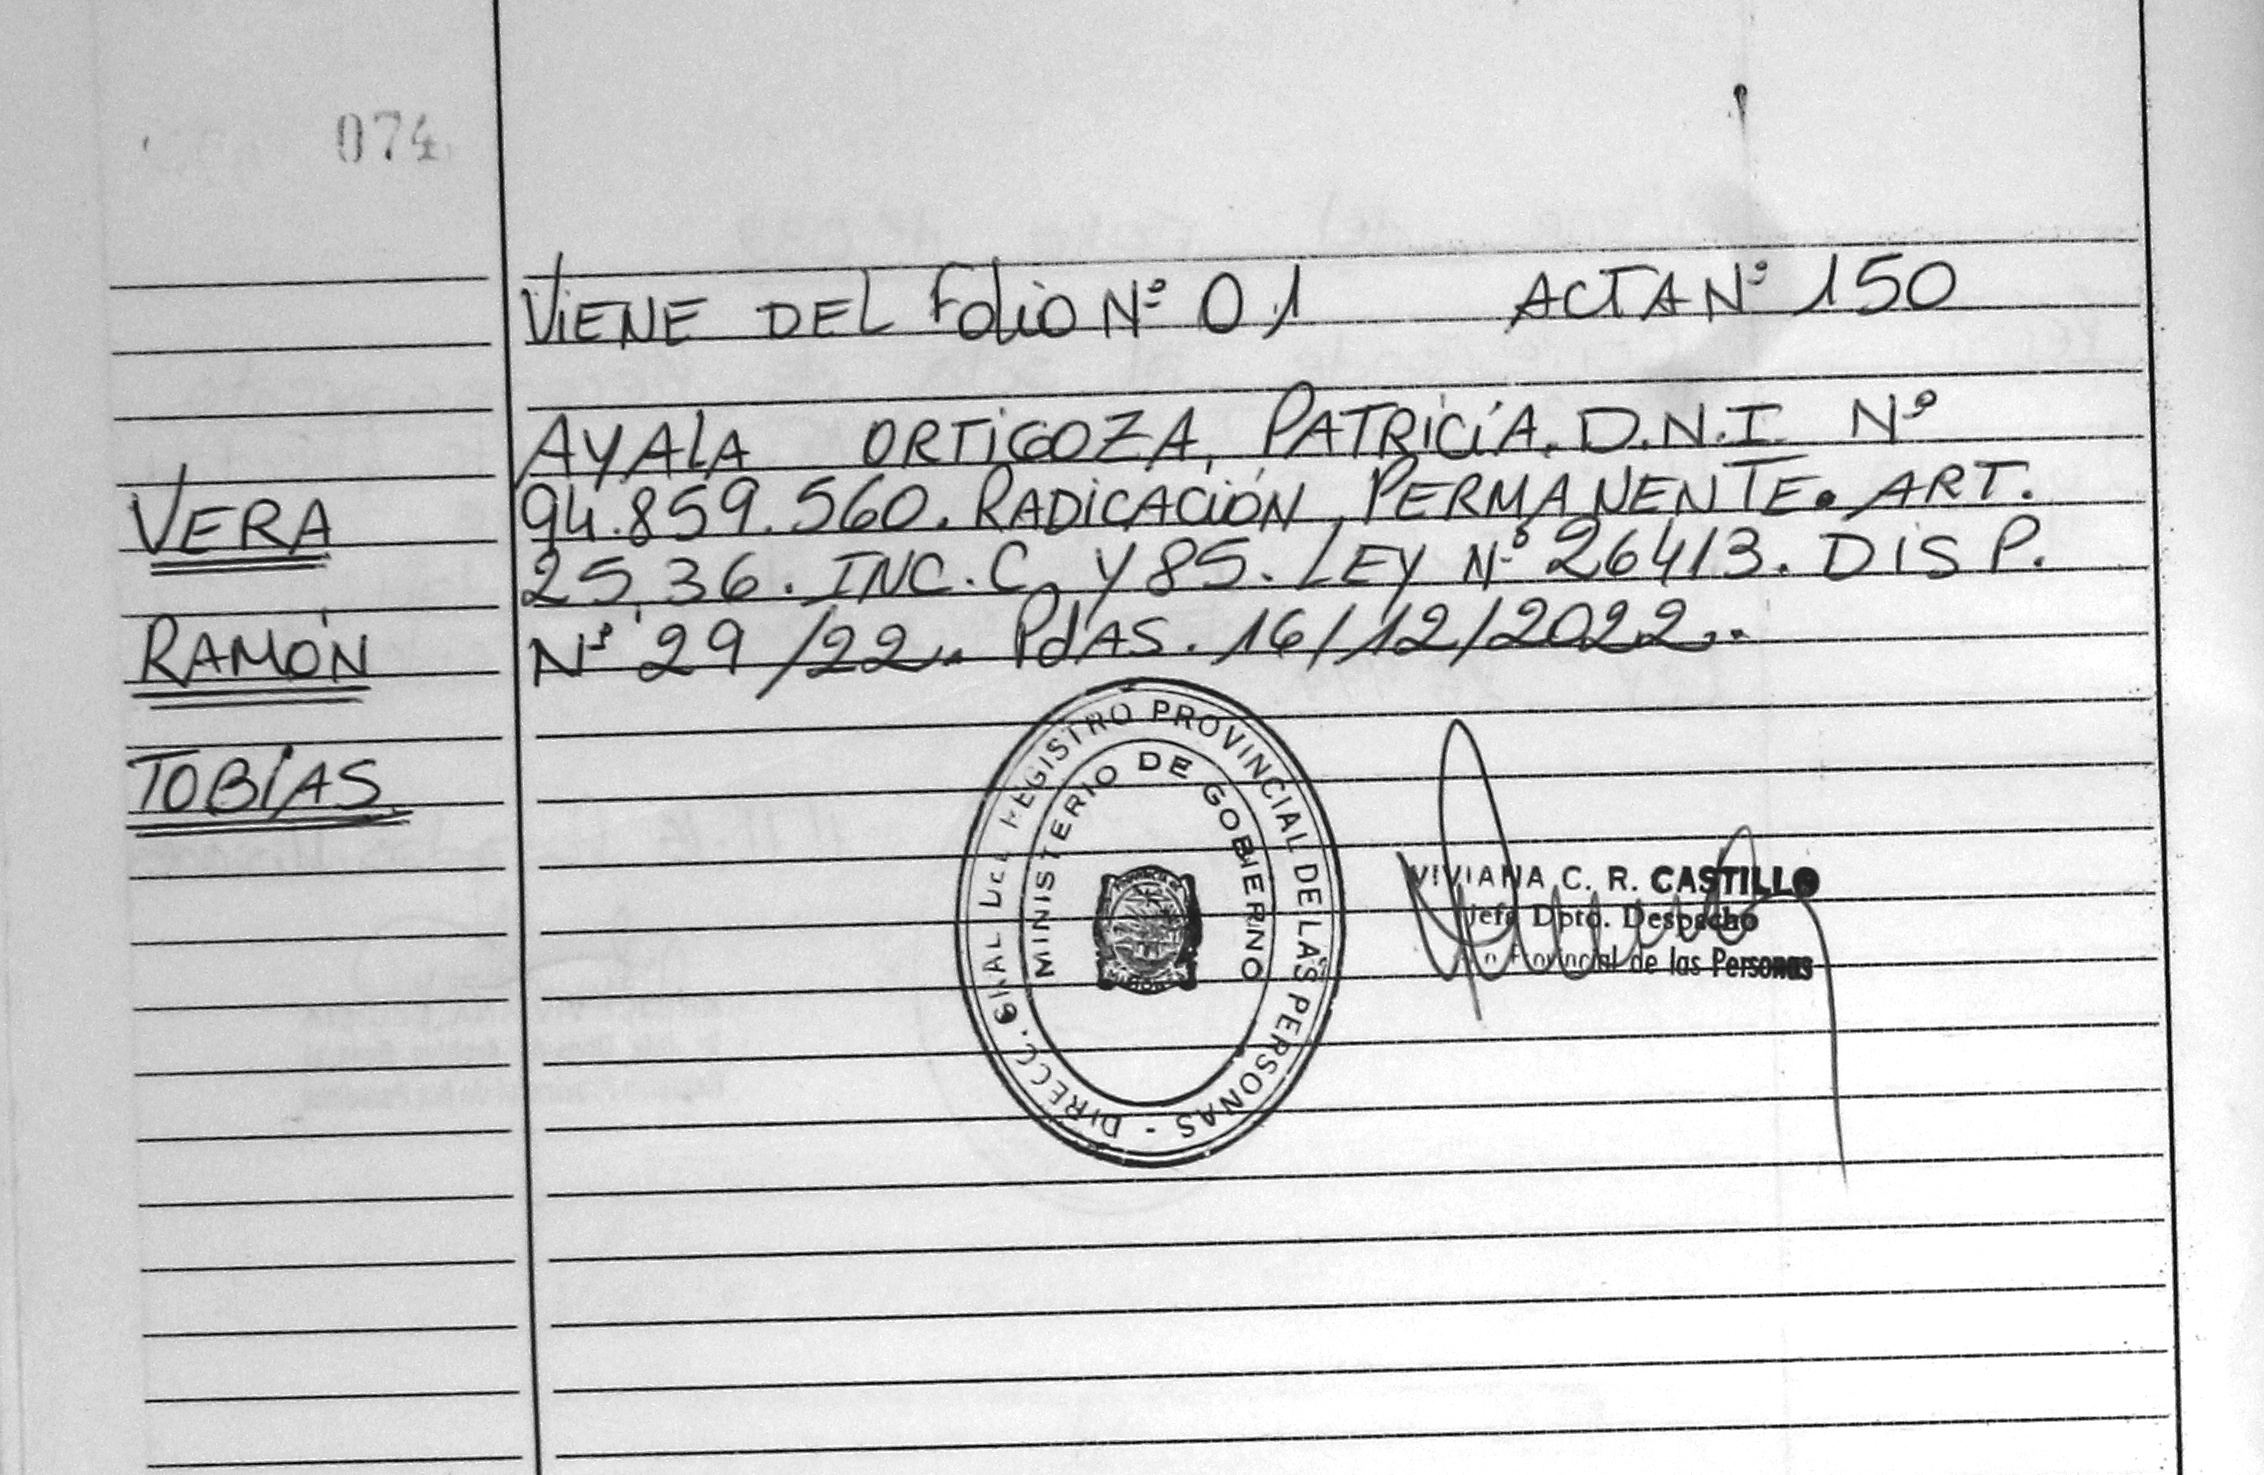 074
VIENE DEL FOLIO Nº 01 ACTA Nº 150
AYALA ORTIGOZA, PATRICIA. D.N.I Nº
94.859.560. RADICACIÓN PERMANENTE. ART.
25,36. INC. C y 85. LEY Nº 26413. DISP.
Nº 29/22. PdAS. 16/12/2022.
VERA
RAMÓN
TOBÍAS
DIRECC. GRAL DEL REGISTRO PROVINCIAL DE LAS PERSONAS -
MINISTERIO DE GOBIERNO
VIVIANA C. R. CASTILLO
Jefa Dpto. Despacho
Provincial de las Personas